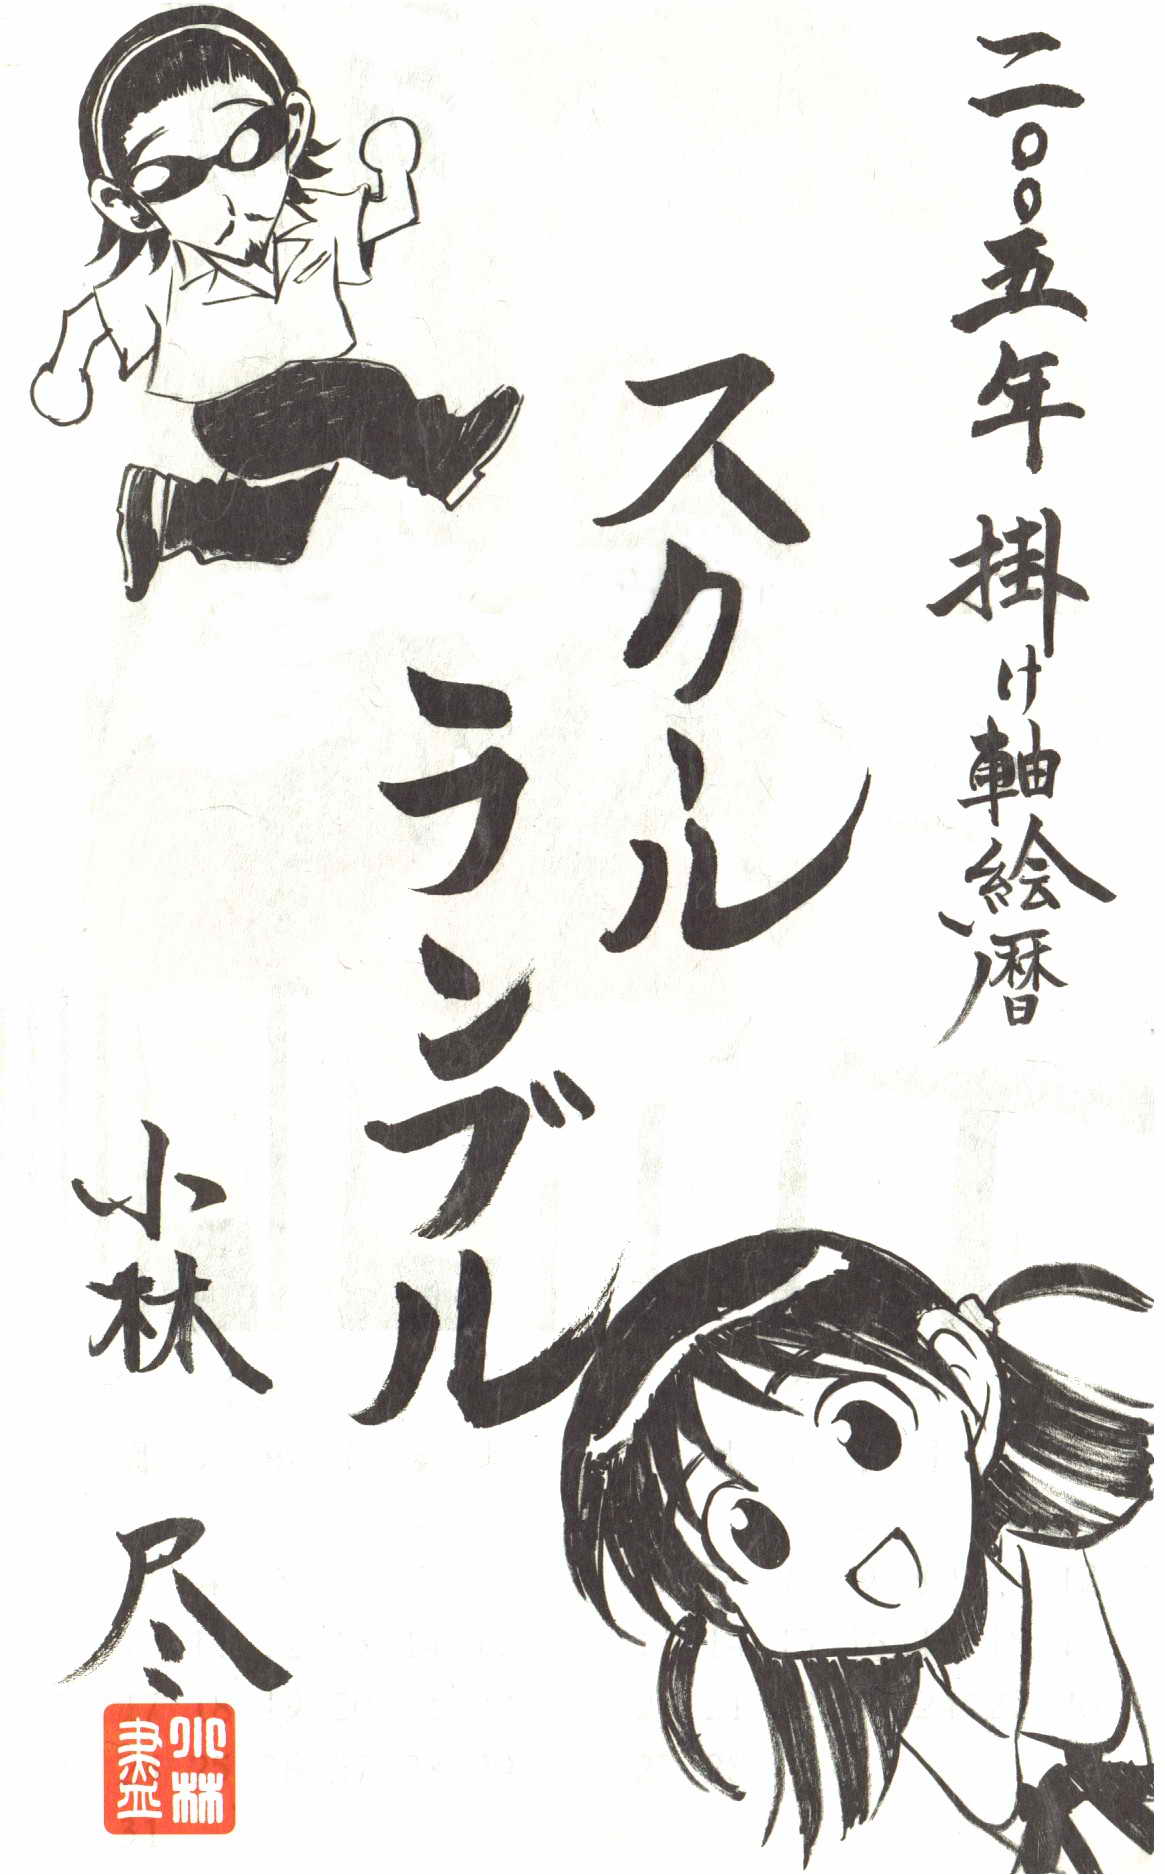 二〇〇五年 掛け軸絵暦
スクール
ランブル
小林 尽
小林
盡